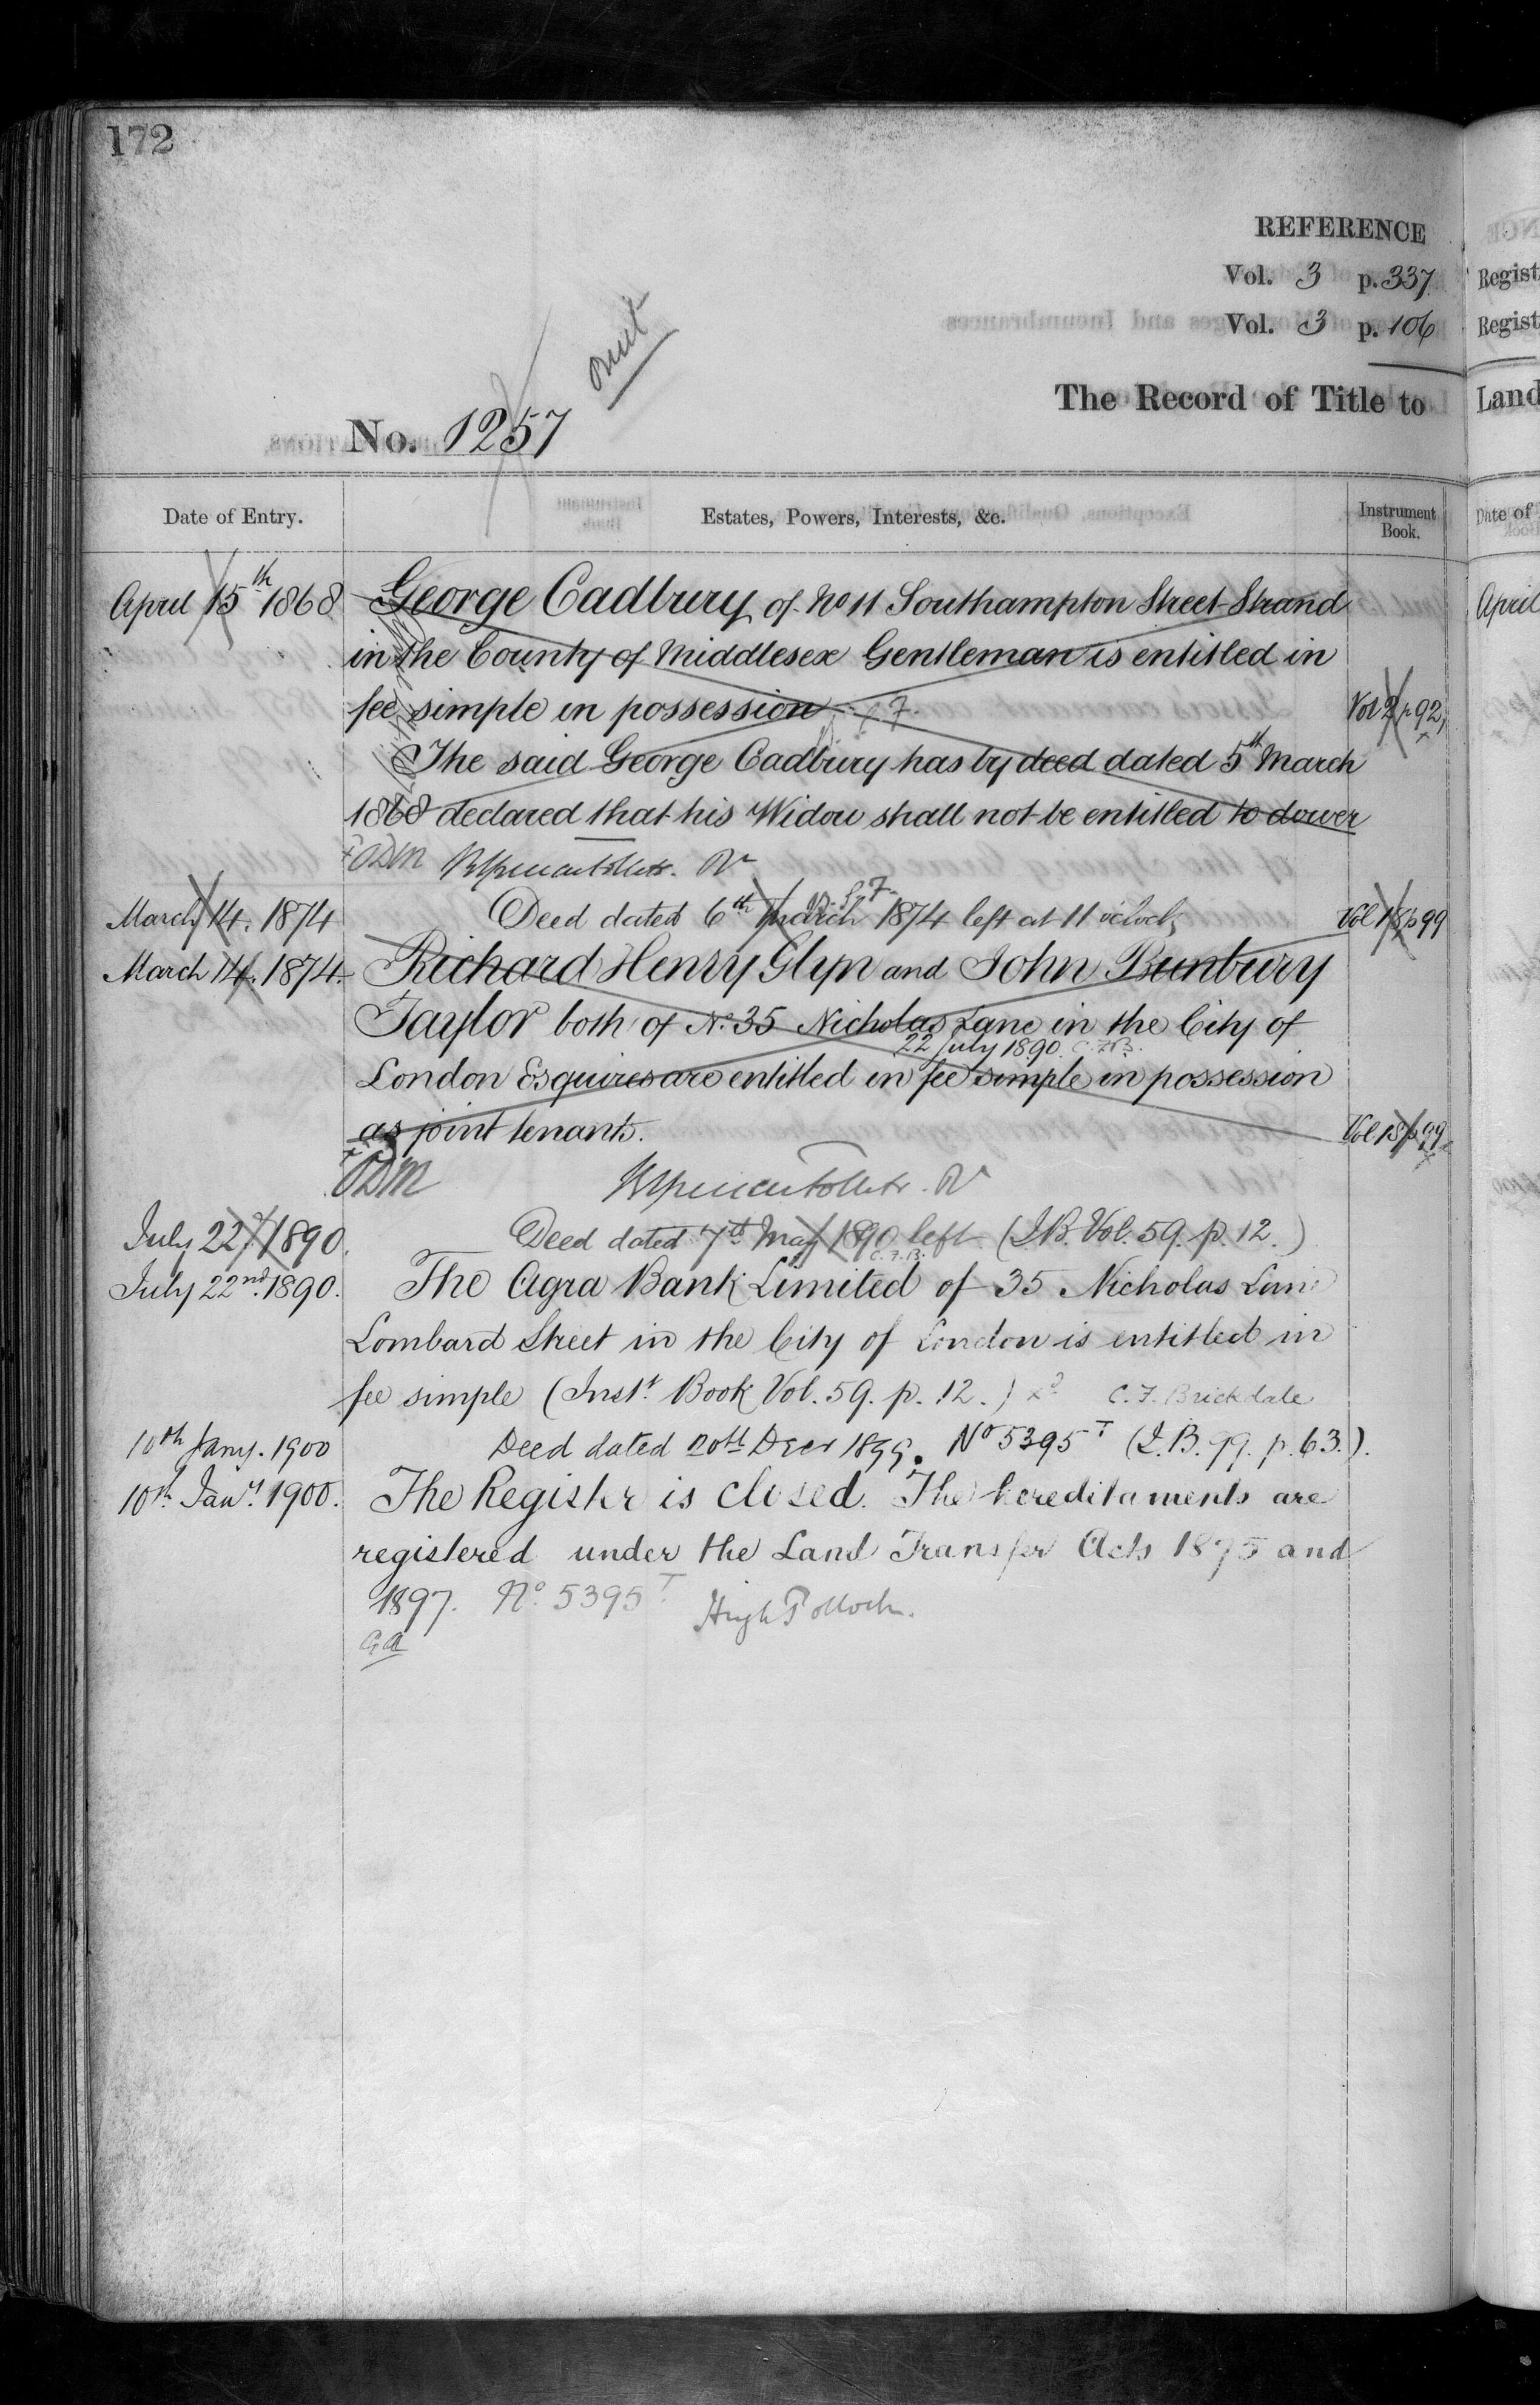 172
REFERENCE
Vol. 3 p. 337
Vol. 3 p. 106
The Record of Title to
Land
Regist
Regist
No. 1257
Date of Entry.
Estates, Powers, Interests, &c.
Instrument Book.
Date of
April 15th 1868 George Cadbury of No 11 Southampton Street Strand
April
in the County of Middlesex Gentleman is entitled in
fee simple in possession Vol 2 p 92
The said George Cadbury has by deed dated 5th March
1868 declared that his Widow shall not be entitled to dower
March 14. 1874 Deed dated 6th March 1874 left at 11 o'clock Vol 18 p 99
March 14. 1874. Richard Henry Glyn and John Bunbury
Taylor both of No. 35 Nicholas Lane in the City of
22 July 1890. C.F.B.
London Esquires are entitled in fee simple in possession
as joint tenants. Vol 18 p 99
July 22. 1890. Deed dated 7th May 1890 left (I.B. Vol. 59. p. 12.)
C.F.B.
July 22nd. 1890. The Agra Bank Limited of 35 Nicholas Lane
Lombard Street in the City of London is entitled in
fee simple (Inst. Book Vol. 59. p. 12.) C. F. Brickdale
10th Jany. 1900 Deed dated 20th Decr 1899. No 5395 T (I.B. 99. p. 63.).
10th Jany. 1900. The Register is closed. The hereditaments are
registered under the Land Transfer Acts 1875 and
1897. No. 5395 T Hugh Pollock.